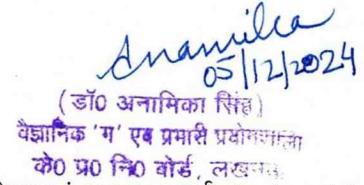 Anamika
05/12/2024
(डॉ0 अनामिका सिंह)
वैज्ञानिक 'ग' एव प्रभारी प्रयोगशाला
के0 प्र0 नि0 बोर्ड, लखनऊ